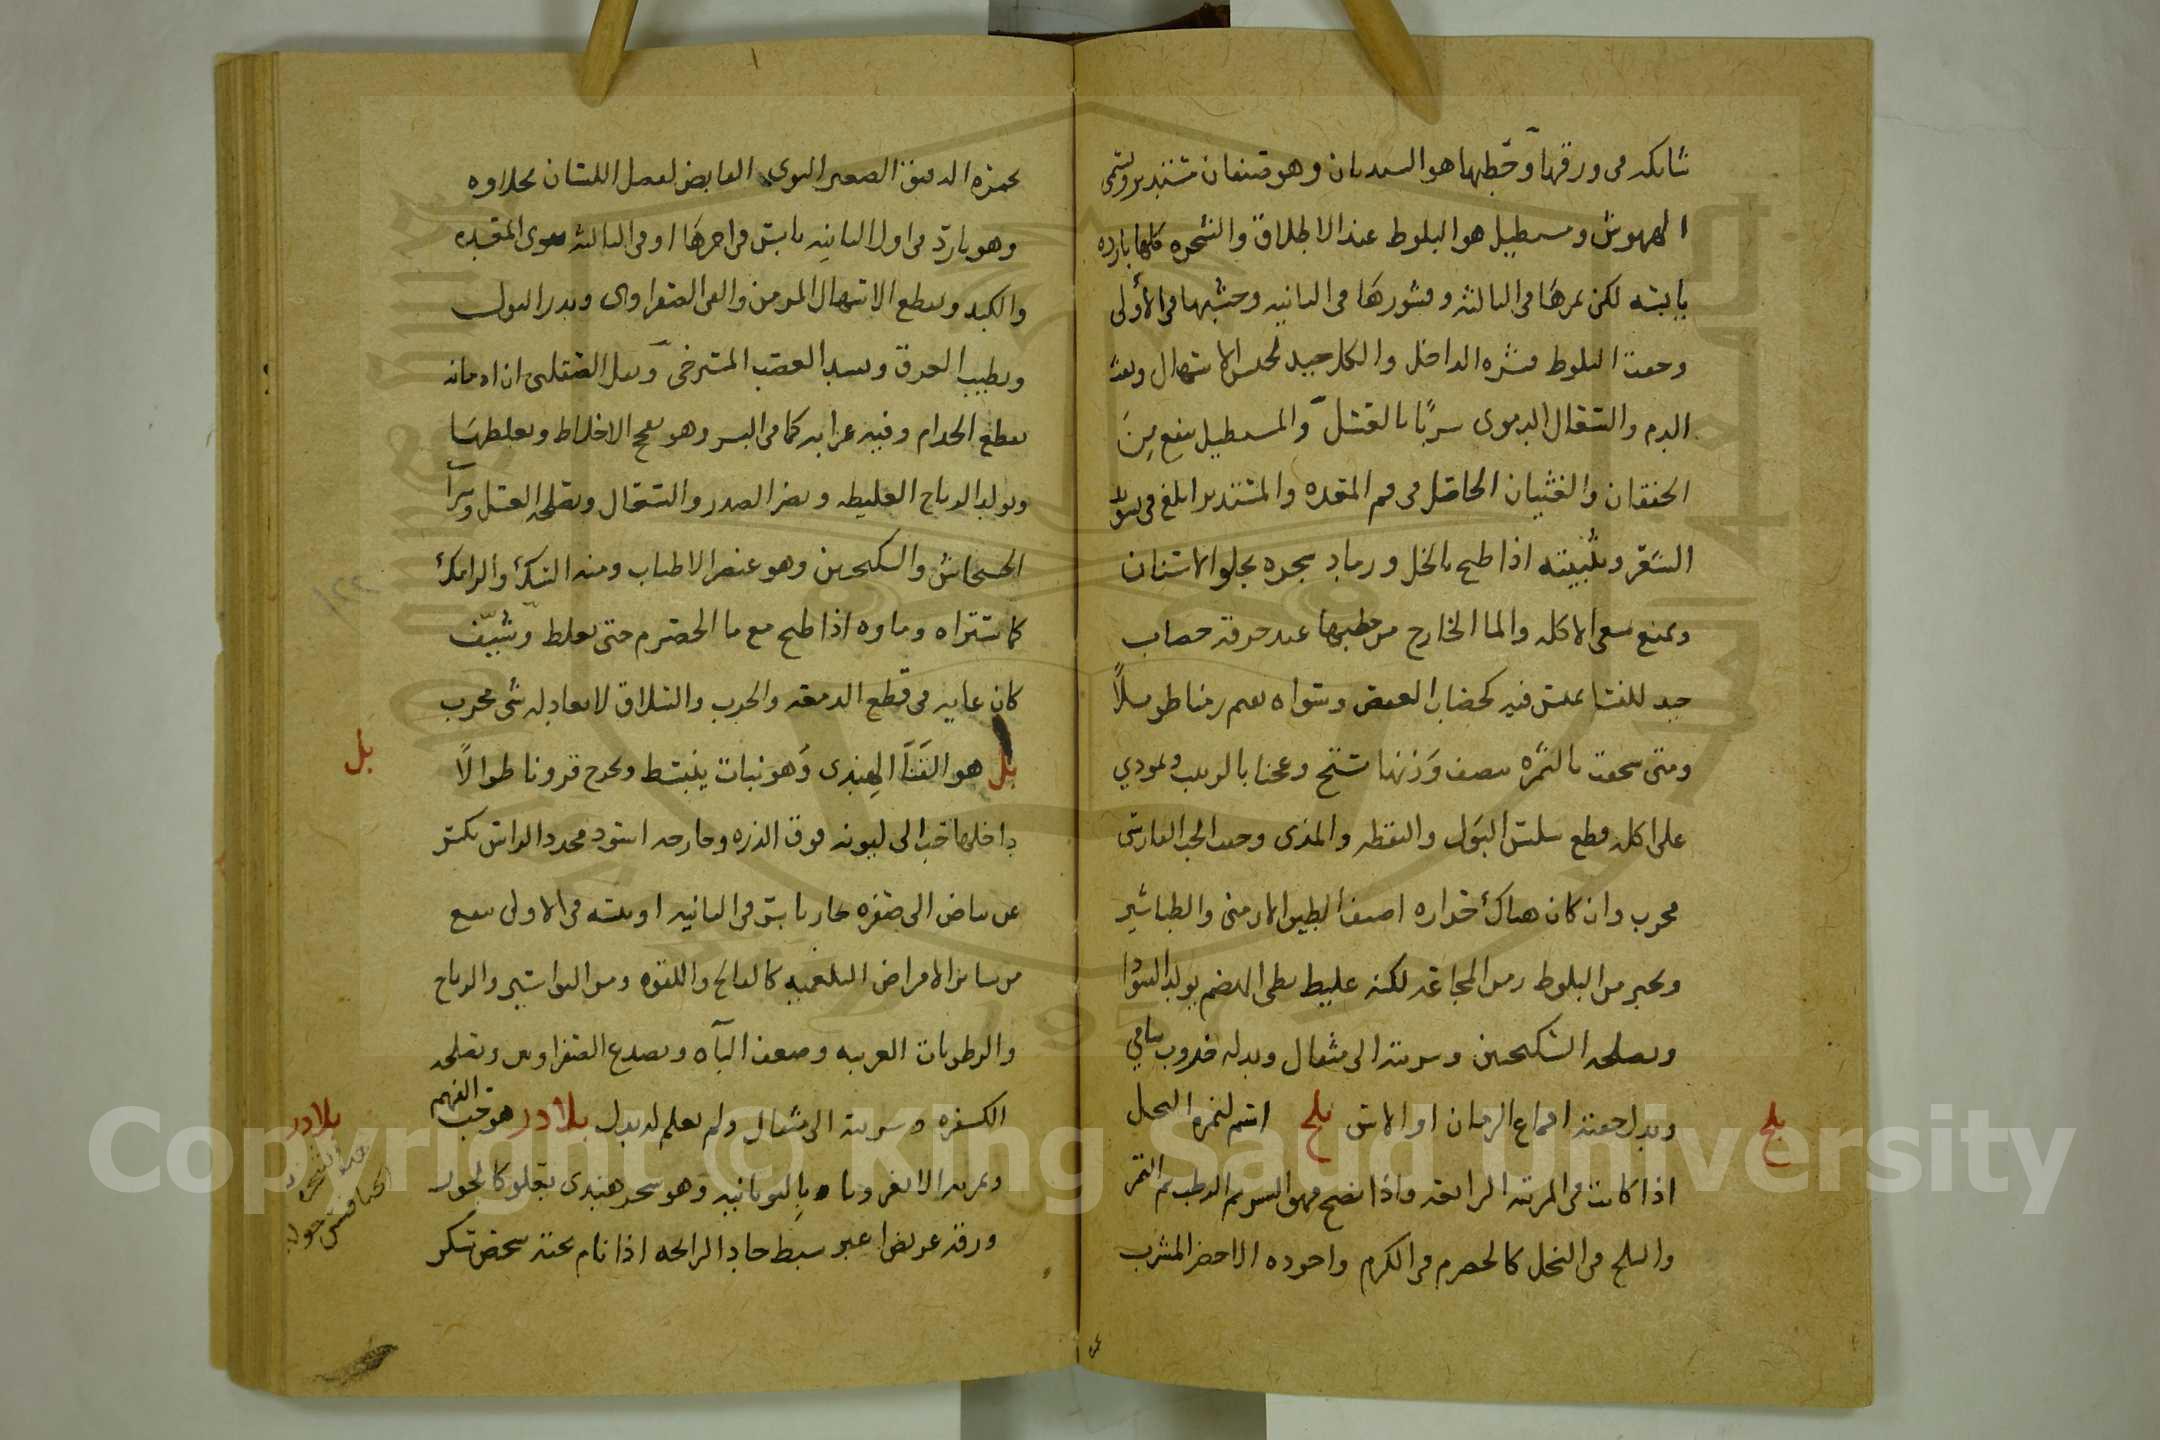 شائكة في ورقها وحطبها هو السنديان وهو صنفان مستدير ويسمى
البهوش ومستطيل هو البلوط عند الاطلاق والشجرة كلها باردة
يابسة لكن ثمرها في الثالثة وقشورها في الثانية وخشبها في الأولى
وجفت البلوط قشره الداخل والكل جيد لحبس الاسهال ونفث
الدم والسعال الدموي شربًا بالعسل والمستطيل ينفع من
الخفقان والغثيان الحاصل في فم المعدة والمستدير ابلغ في تسويد
الشعر وتثبيته اذا طبخ بالخل ورماد شجره يجلو الاسنان
ويمنع سعي الاكلة والما الخارج من حطبها عند حرقه خضاب
جيد للنسا يمكث فيه كخضاب العفص وسواه نعم زمنا طويلاً
ومتى سحقت بالثمرة بنصف وزنها وعجنا بالزيت وتمودي
على اكله قطع سلس البول والنقطة والمذي وحب الفارسي
مجرب وان كان هناك حرارة اضف الطين الارمني والطباشير
ويخبز من البلوط زمن المجاعة لكنه غليط بطي الهضم يولد السودا
ويصلحه السكنجبين وشربته الى مثقال وبدله خروب شامي
وبدل جفته اقماع الرمان او الاس بلح اسم لثمرة النخل
اذا كانت في المرتبة الرابعة واذا نضج فهو البسر ثم الرطب ثم التمر
والبلح في النخل كالحصرم في الكرم واجوده الاخضر المشرب
بلح
بحمرة الدقيق الصغير النوى القابض لفضل اللسان بحلاوة
وهو بارد في اول الثانية يابس في اخرها او في الثالثة يقوي المعدة
والكبد ويقطع الاسهال المزمن والقي الصفراوي ويدر البول
ويطيب العرق ويشد العصب المسترخي ونقل الصقلي ان ادمانه
يقطع الجذام وفيه غرابة كما في البسر وهو يفجج الاخلاط ويغلظها
ويولد الرياح الغليظة ويضر الصدر والسعال ويصلحه العسل وشراب
الخشخاش والسكنجبين وهو عنصر الاطياب ومنه السك والرامك
كما ستراه وماوه اذا طبخ مع ما الحصرم حتى يغلظ وشيّف
كان غاية في قطع الدمعة والجرب والسلاق لا يعادله شي مجرب
بل هو القثا الهندي وهو نبات ينبسط ويخرج قرونا طوالاً
داخلها حب الى ليونة فوق الذرة وخارجه اسود محدد الراس يكسر
عن بياض الى صفرة حار يابس في الثانية او يبسه في الاولى ينفع
من سائر الامراض البلغمية كالفالج واللقوة ومن البواسير والرياح
والرطوبات الغريبة وضعف الباه ويصدع الصفراوين وتصلحه
الكسفرة وشربته الى مثقال ولم يعلم له بدل بلادر هو حب الفهم
وثمرته الانقرديا باليونانية وهو شجر هندي يعلو كالجوز
ورقه عريض اغبر سبط حاد الرائحة اذا نام تحته شخص سكر
بل
بلادر